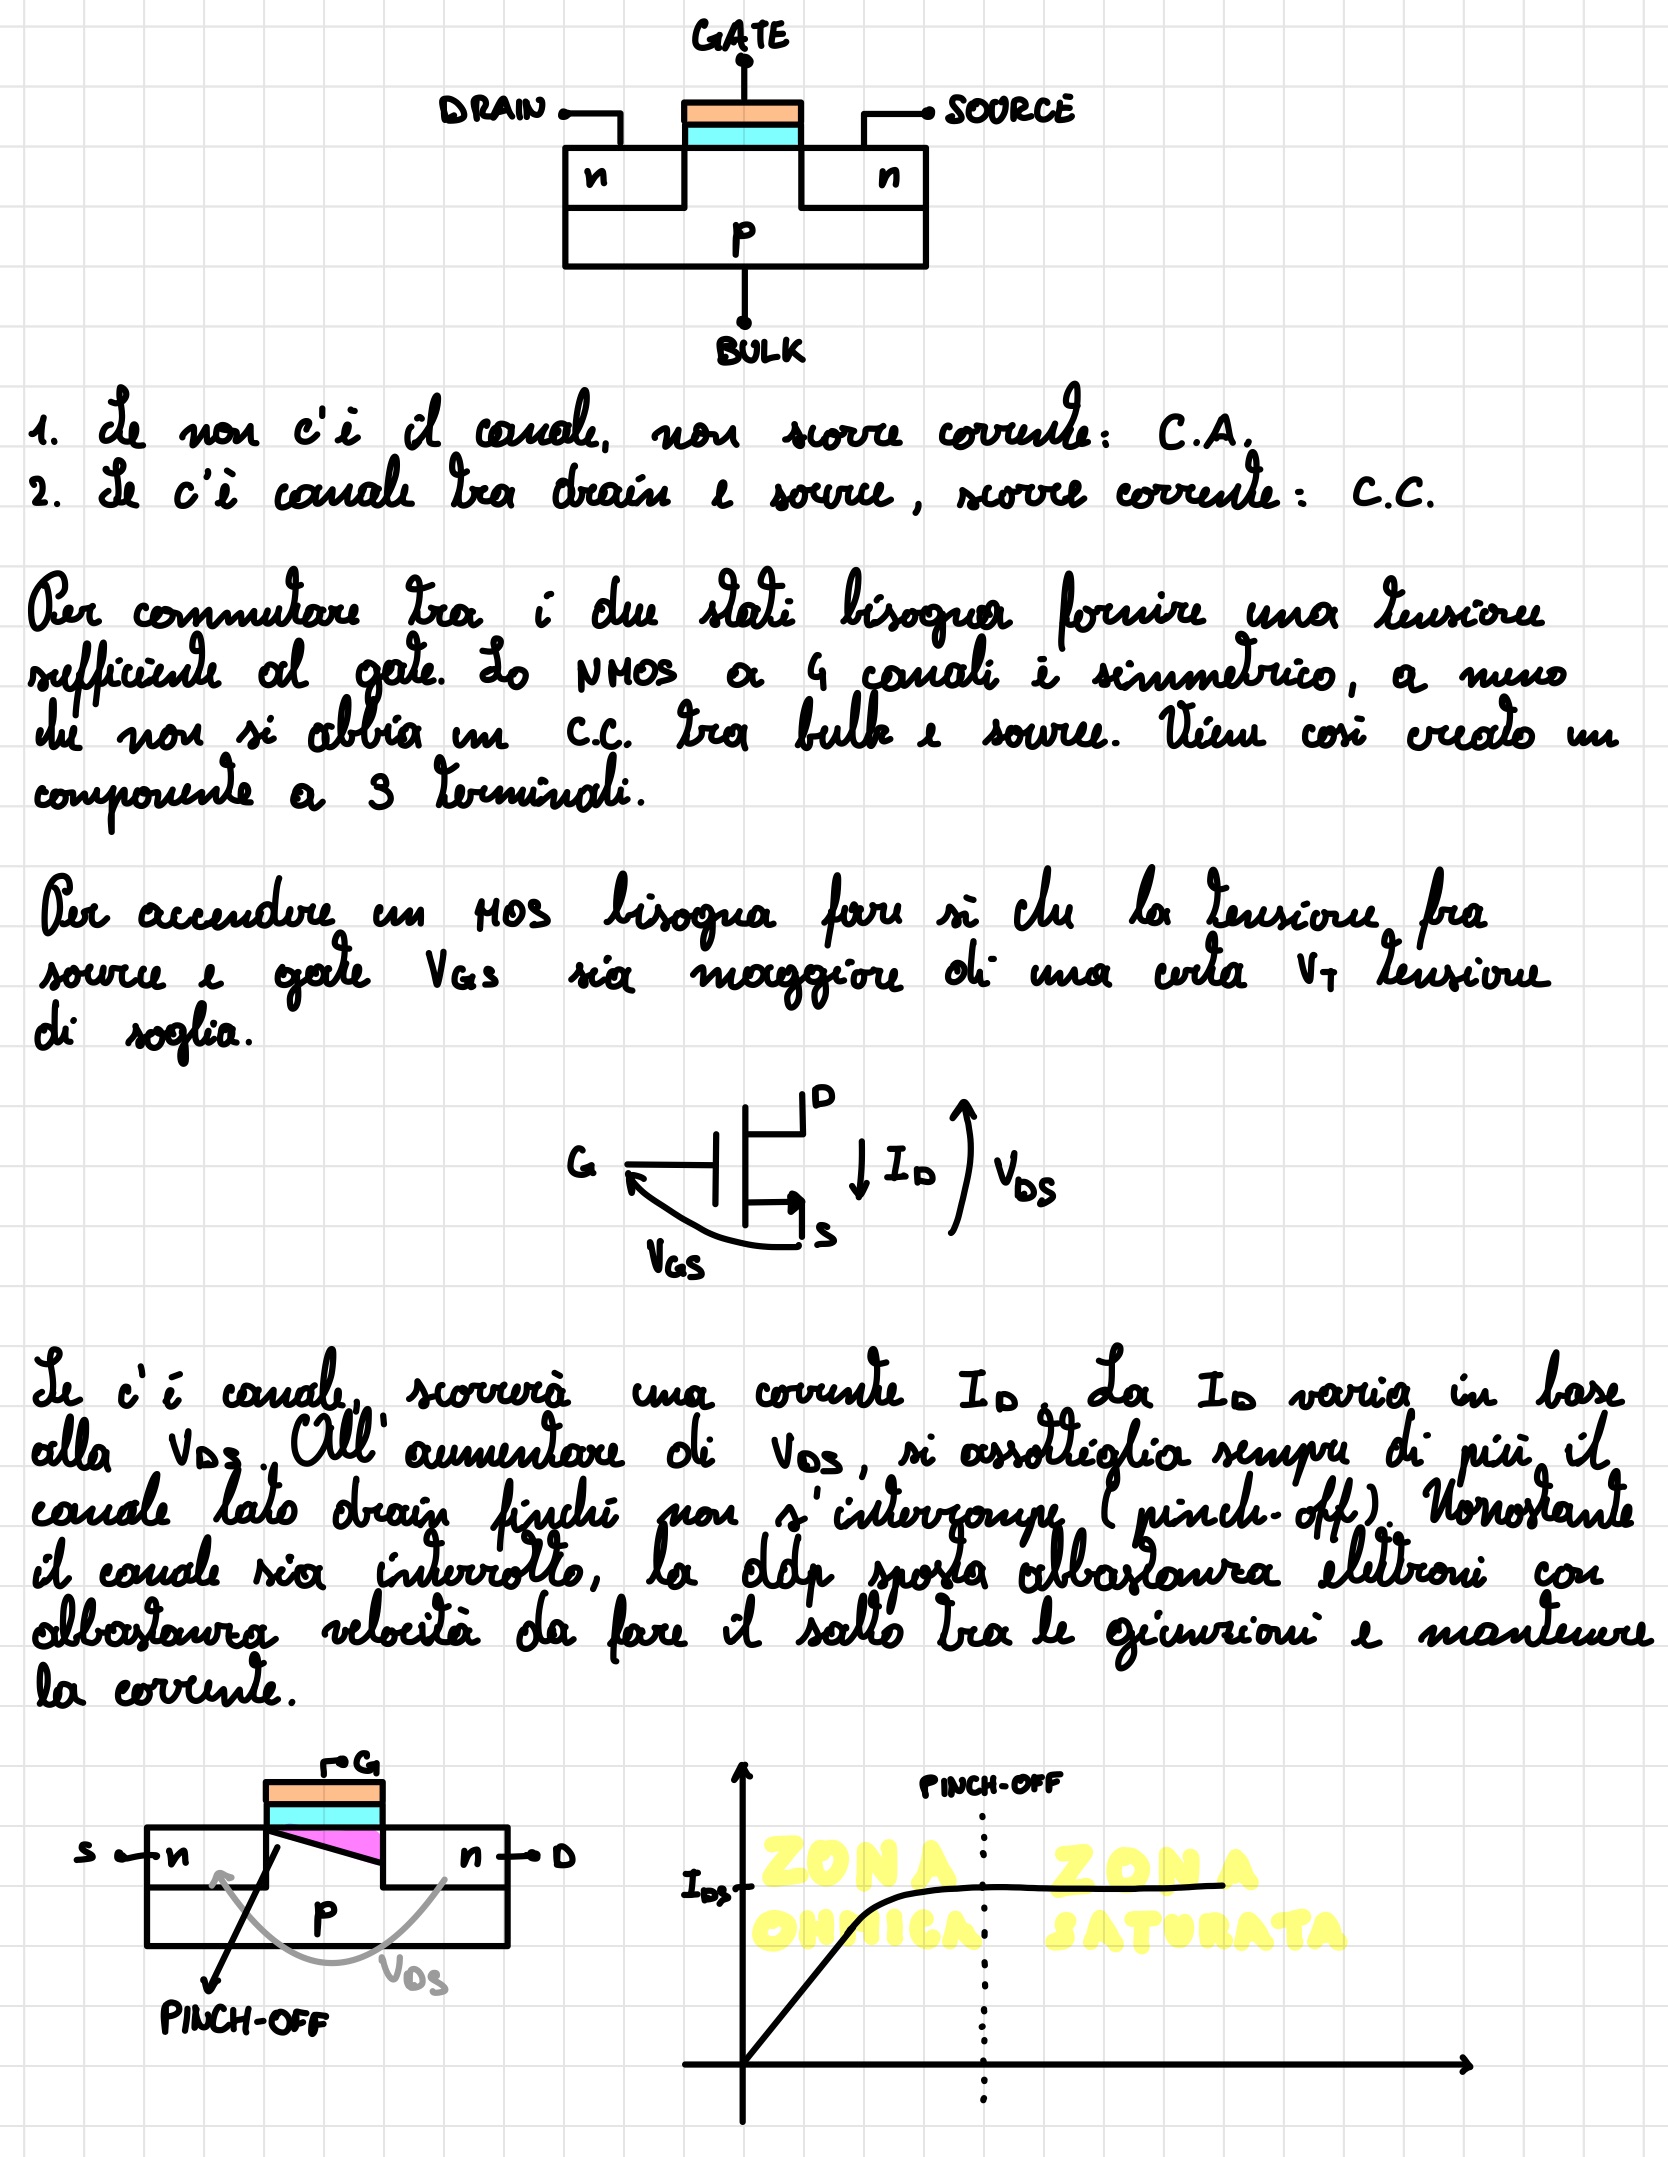 GATE
DRAIN
SOURCE
n
n
p
BULK
1. Se non c'è il canale, non scorre corrente: C.A.
2. Se c'è canale tra drain e source, scorre corrente: C.C.
Per commutare tra i due stati bisogna fornire una tensione
sufficiente al gate. Lo NMOS a 4 canali è simmetrico, a meno
che non si abbia un C.C. tra bulk e source. Viene così creato un
componente a 3 terminali.
Per accendere un MOS bisogna fare si che la tensione fra
source e gate VGS sia maggiore di una certa VT tensione
di soglia.
D
G
ID
VDS
S
VGS
Se c'è canale, scorrerà una corrente ID. La ID varia in base
alla VDS. All'aumentare di VDS, si assottiglia sempre di più il
canale lato drain finchè non s'interrompe (pinch-off). Nonostante
il canale sia interrotto, la ddp sposta abbastanza elettroni con
abbastanza velocità da fare il salto tra le giunzioni e mantenere
la corrente.
G
S
n
n
D
p
VDS
PINCH-OFF
PINCH-OFF
ZONA
OHMICA
ZONA
SATURATA
IDS